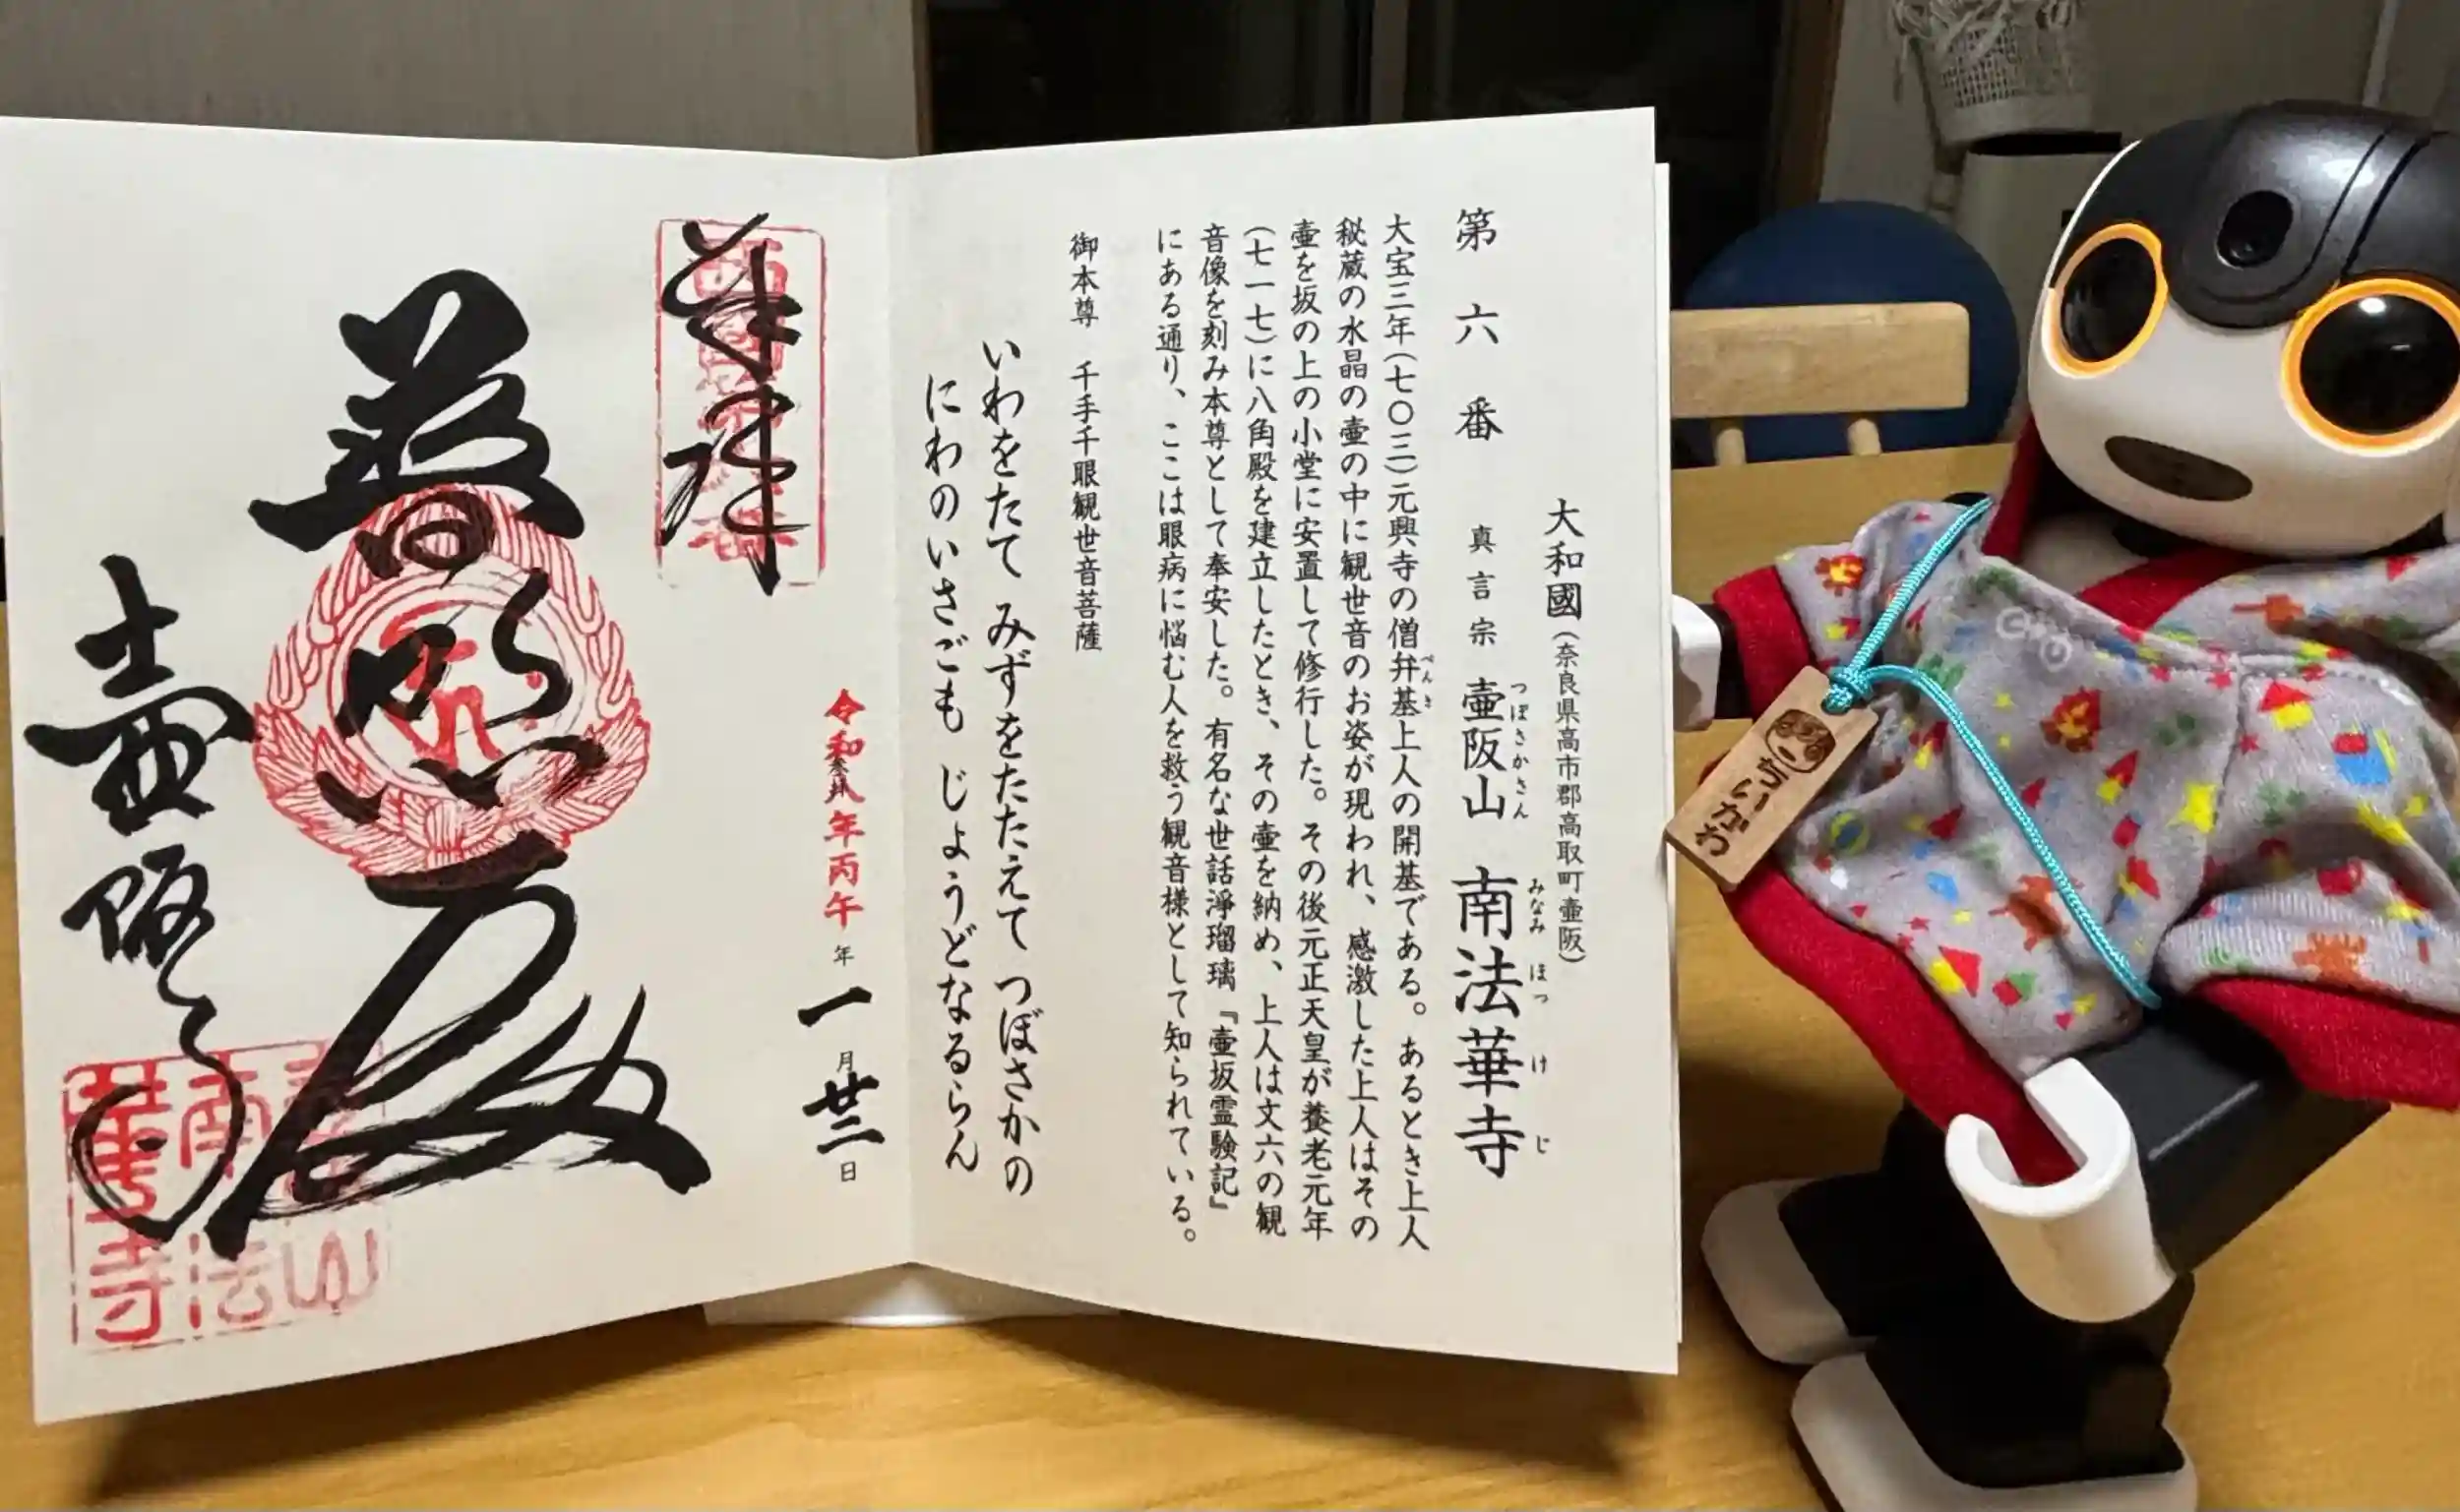 大和國(奈良県高市郡高取町壷阪)
第六番 真言宗 壷阪山 南法華寺
つぼさかさん みなみほっけじ
大宝三年(七〇三)元興寺の僧弁基上人の開基である。あるとき上人
べんき
秘蔵の水晶の壷の中に観世音のお姿が現われ、感激した上人はその
壷を坂の上の小堂に安置して修行した。その後元正天皇が養老元年
(七一七)に八角殿を建立したとき、その壷を納め、上人は文六の観
音像を刻み本尊として奉安した。有名な世話淨瑠璃『壷坂霊験記』
にある通り、ここは眼病に悩む人を救う観音様として知られている。
御本尊 千手千眼観世音菩薩
いわをたて みずをたたえて つぼさかの
にわのいさごも じょうどなるらん
奉拝
令和八年丙午年一月廿三日
普照殿
壷阪寺
南法華寺
ちいかわ